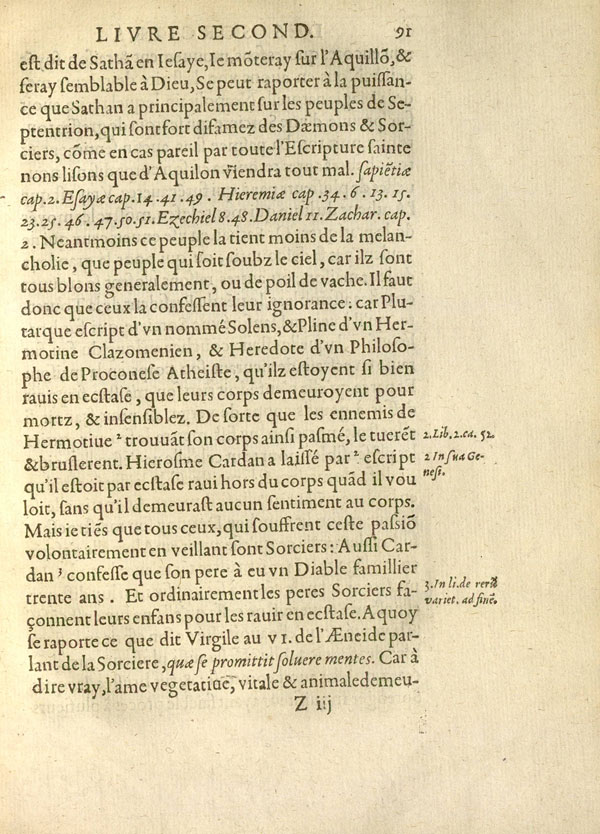 LIVRE SECOND. 91
est dit de Sathã en Iesaye, Ie mõteray sur l'Aquillõ, &
feray semblable à Dieu, Se peut raporter à la puissan-
ce que Sathan a principalement sur les peuples de Se-
ptentrion, qui sont fort difamez des Dæmons & Sor-
ciers, cõme en cas pareil par toute l'Escripture sainte
nons lisons que d'Aquilon viendra tout mal. sapiẽtiæ
cap. 2. Esayæ cap. 14. 41. 49. Hieremiæ cap. 34. 6. 13. 15.
23. 25. 46. 47. 50. 51. Ezechiel 8. 48. Daniel 11. Zachar. cap.
2. Neantmoins ce peuple la tient moins de la melan-
cholie, que peuple qui soit soubz le ciel, car ilz sont
tous blons generalement, ou de poil de vache. Il faut
donc que ceux la confessent leur ignorance : car Plu-
tarque escript d'vn nommé Solens, & Pline d'vn Her-
motine Clazomenien, & Heredote d'vn Philoso-
phe de Proconese Atheiste, qu'ilz estoyent si bien
rauis en ecstase, que leurs corps demeuroyent pour
mortz, & insensiblez. De sorte que les ennemis de
Hermotiue ² trouuãt son corps ainsi pasmé, le tuerẽt
& bruslerent. Hierosme Cardan a laissé par ² escript
qu'il estoit par ecstase raui hors du corps quãd il vou
loit, sans qu'il demeurast aucun sentiment au corps.
Mais ie tiẽs que tous ceux, qui souffrent ceste passiõ
volontairement en veillant sont Sorciers : Aussi Car-
dan ³ confesse que son pere à eu vn Diable famillier
trente ans. Et ordinairement les peres Sorciers fa-
çonnent leurs enfans pour les rauir en ecstase. A quoy
se raporte ce que dit Virgile au VI. de l'Æneide par-
lant de la Sorciere, quæ se promittit soluere mentes. Car à
dire vray, l'ame vegetatiue, vitale & animale demeu-
Z iij
2. Lib. 2. ca. 52.
2 In sua Ge-
nesi.
3. In li. de rerũ
variet. ad finẽ.